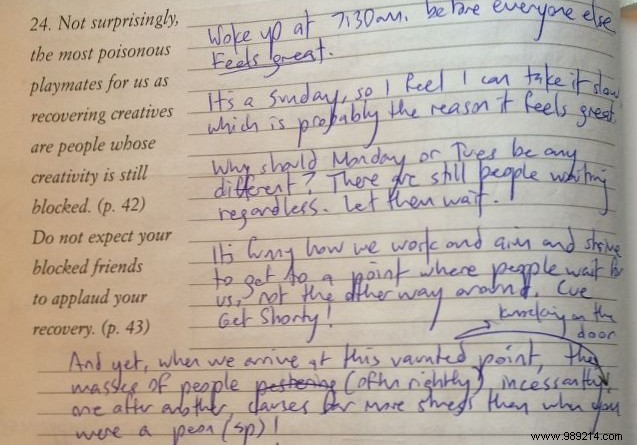 24. Not surprisingly,
the most poisonous
playmates for us as
recovering creatives
are people whose
creativity is still
blocked. (p. 42)
Do not expect your
blocked friends
to applaud your
recovery. (p. 43)
Woke up at 7:30am. before everyone else
Feels great.
It's a Sunday, so I feel I can take it slow,
which is probably the reason it feels great.
Why should Monday or Tues be any
different? There are still people waiting
regardless. Let them wait.
It's funny how we work and aim and strive
to get to a point where people wait for
us, not the other way around. Cue
Get Shorty!
knocking on the
door
And yet, when we arrive at this vaunted point, the
masses of people pestering (often rightly) incessantly,
one after another, causes far more stress than when you
were a peon (sp)!
www.989214.com